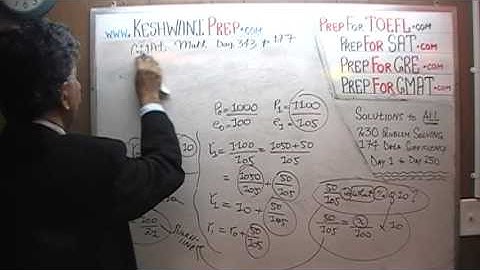 www.KESHWANIPREP.com
GMAT Math Day 343 P 177
PREPFOR TOEFL.com
PREPFOR SAT.com
PREPFOR GRE.com
PREPFOR GMAT.com
SOLUTIONS TO ALL
230 PROBLEM SOLVING
174 DATA SUFFICIENCY
DAY 1 to DAY 250
P₀ = 1000
e₀ = 100
P₁ = 1100
e₁ = 105
r₁ = 1100/105 = 1050+50/105
= 1050/105 + 50/105
r₁ = 10 + 50/105
r₁ = r₀ + 50/105
50/105 is what % of 10 ?
50/105 = x/100 × 10
10